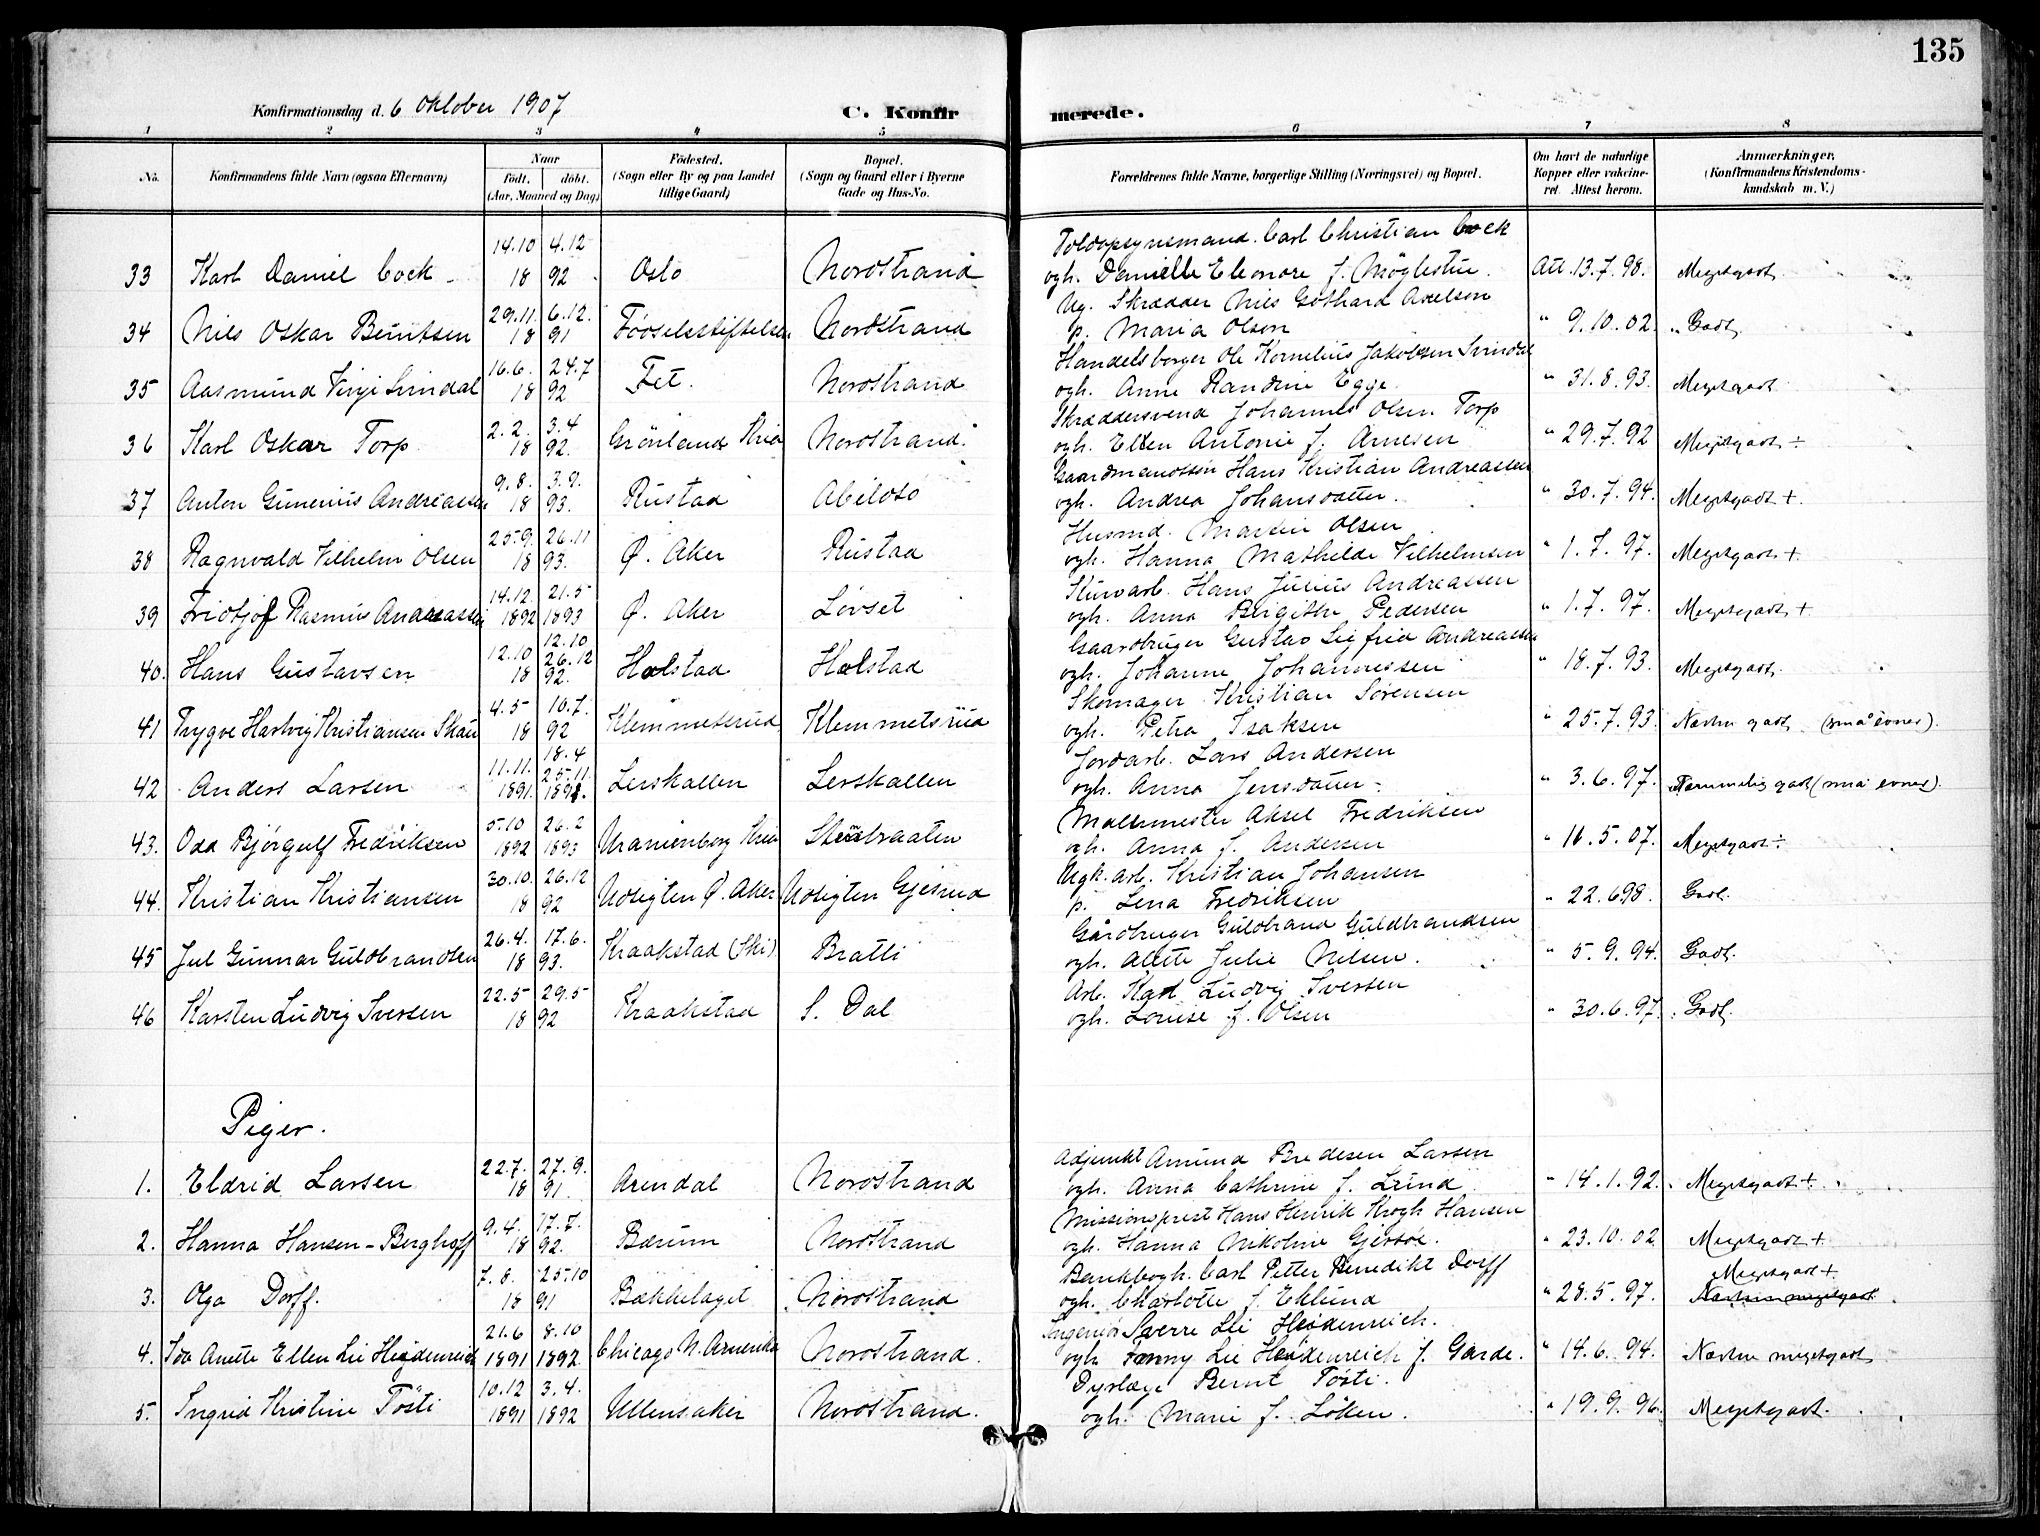 135
Konfirmationsdag d. 6 Oktober 1907
C. Konfirmerede.
1 2 3 4 5 6 7 8
No. Konfirmandens fulde Navn (ogsaa Efternavn) Naar født, døbt. (Aar, Maaned og Dag) Fødested, (Sogn eller By og paa Landet tillige Gaard) Bopæl. (Sogn og Gaard eller i Byerne Gade og Hus-No. Forældrenes fulde Navne, borgerlige Stilling (Næringsvei) og Bopæl. Om havt de naturlige Kopper eller vakcineret. Attest herom. Anmærkninger, (Konfirmandens Kristendomskundskab m. V.)
33 Karl Daniel Cock 14.10 4.12 18 92 Oslo Nordstrand Toldopsynsmand Carl Christian Cock
ogh. Danielle Eleonore f. Møglestue. Att. 13.7.98. Megetgodt
34 Nils Oskar Berntsen 29.11. 6.12. 18 91 Fødselsstiftelsen Nordstrand Ug. Skrædder Nils Gothard Axelson
p. Maria Olson " 9.10.02. Godt
35 Aasmund Virje Svindal 16.6. 24.7 18 92 Fet. Nordstrand Handelsborger Ole Kornelius Jakobsen Svindal
ogh. Anne Randine Egge. " 31.8.93. Megetgodt
36 Karl Oskar Torp 2.2. 3.4 18 92. Grønland Kria Nordstrand. Skræddersvend Johannes Olsen Torp
ogh. Ellen Antonie f. Arnesen " 29.7.92 Megetgodt ÷
37 Anton Gunerius Andreassen 9.8. 3.9. 18 93. Rustad Abildsø Gaardmandssøn Hans Kristian Andreassen
ogh. Andrea Johansdatter. " 30.7.94. Megetgodt +
38 Ragnvald Vilhelm Olsen 25.9. 26.11 18 93. Ø. Aker Rustad Husmd. Martin Olsen
ogh. Hanna Mathilde Vilhelmsen " 1.7.97. Megetgodt +
39 Fridtjof Rasmus Andreassen 14.12. 21.5 1892 1893 Ø. Aker Lovset Kurvarb. Hans Julius Andreassen
ogh. Anna Birgithe Pedersen " 1.7.97. Megetgodt +
40. Hans Gustavsen 12.10 12.10 26.12 18 92. Holstad Holstad Gaardbruger Gustav Sigfrid Andreassen
ogh. Johanne Johannessen " 18.7.93. Megetgodt
41 Trygve Hartvig Kristiansen Skau 4.5 10.7. 18 92 Klemmetsrud Klemmetsrud Skomager Kristian Sørensen
ogh. Petra Isaksen " 25.7.93. Næsten godt (små evner).
42 Anders Larsen 11.11. 18.4 25.11. 1891. 1891. Lerskallen Lerskallen Jordarb. Lars Andersen
ogh. Anna Jensdatter " 3.6.97. Temmelig godt (små evner).
43. Odd Bjørgulf Fredriksen 5.10 26.2 1892 1893 Uranienborg Kria Stenbraaten Møllemester Aksel Fredriksen
ogh. Anna f. Andersen " 16.5.07. Megetgodt ÷
44. Kristian Kristiansen 30.10. 26.12 18 92 Udsigten Ø. Aker Udsigten Gjersrud Ugk. arb. Kristian Johansen
p. Lena Fredriksen " 22.6.98. Godt.
45 Jul Gunnar Guldbrandsen 26.4. 17.6. 18 93. Kraakstad (Ski) Bratli Gårdbruger Guldbrand Guldbrandsen
ogh. Alette Julie Nilsen. " 5.9.94. Godt.
46 Karsten Ludvig Iversen 22.5 29.5 18 92 Kraakstad S. Dal Arb. Karl Ludvig Iversen
ogh. Louise f. Olsen " 30.6.97. Godt.
Piger.
1. Eldrid Larsen 22.7. 27.9. 18 91. Arendal Nordstrand Adjunkt Amund Bredesen Larsen
ogh. Anna Cathrine f. Lund " 14.1.92. Megetgodt +
2. Hanna Hansen-Berghoff 9.4. 17.7. 18 92. Bærum Nordstrand Missionsprest Hans Henrik Krogh Hansen
ogh. Hanna Nikoline Gjersøe. " 23.10.02 Megetgodt +
3. Olga Dorff. 7.8. 25.10 18 91 Bækkelaget Nordstrand Bankbogh. Carl Petter Benedikt Dorff
ogh. Charlotte f. Eklund " 28.5.97. Megetgodt + Næsten megetgodt
4. Ida Anette Ellen Lie Heidenreich 21.6 8.10 1891 1892 Chicago N. Amerika Nordstrand. Ingeniør Sverre Lie Heidenreich.
ogh. Fanny Lie Heidenreich f. Garde. " 14.6.94. Næsten megetgodt
5. Ingrid Kristine Tøsti 10.12 3.4. 1891 1892 Ullensaker Nordstrand. Dyrlæge Bernt Tøsti.
ogh. Marie f. Løken. " 19.9.96. Megetgodt.